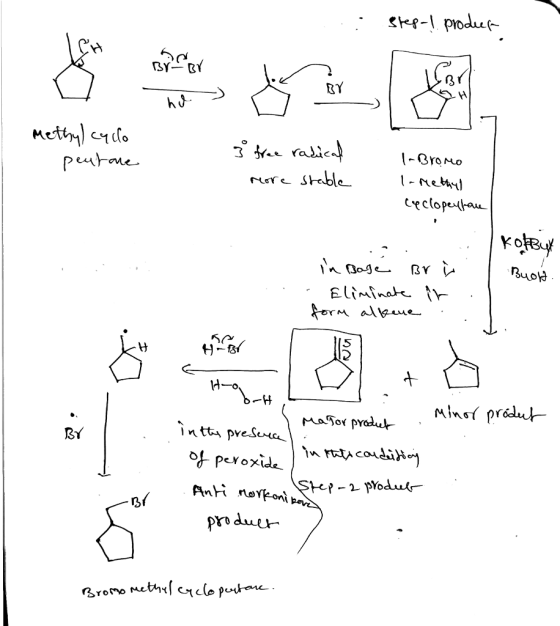 Step-1 product
H
Br-Br
hν
Br
Br
H
Methyl cyclo
pentane
3° free radical
more stable
1-Bromo
1-Methyl
cyclopentane
BuOH
in Base Br is
Eliminate it
form alkene
H
H-Br
H-O
O-H
+
Minor product
Br
in the presence
of peroxide
Anti
product
Major product
in this condition
Step-2 product
Br
Bromo methyl cyclo pentane.